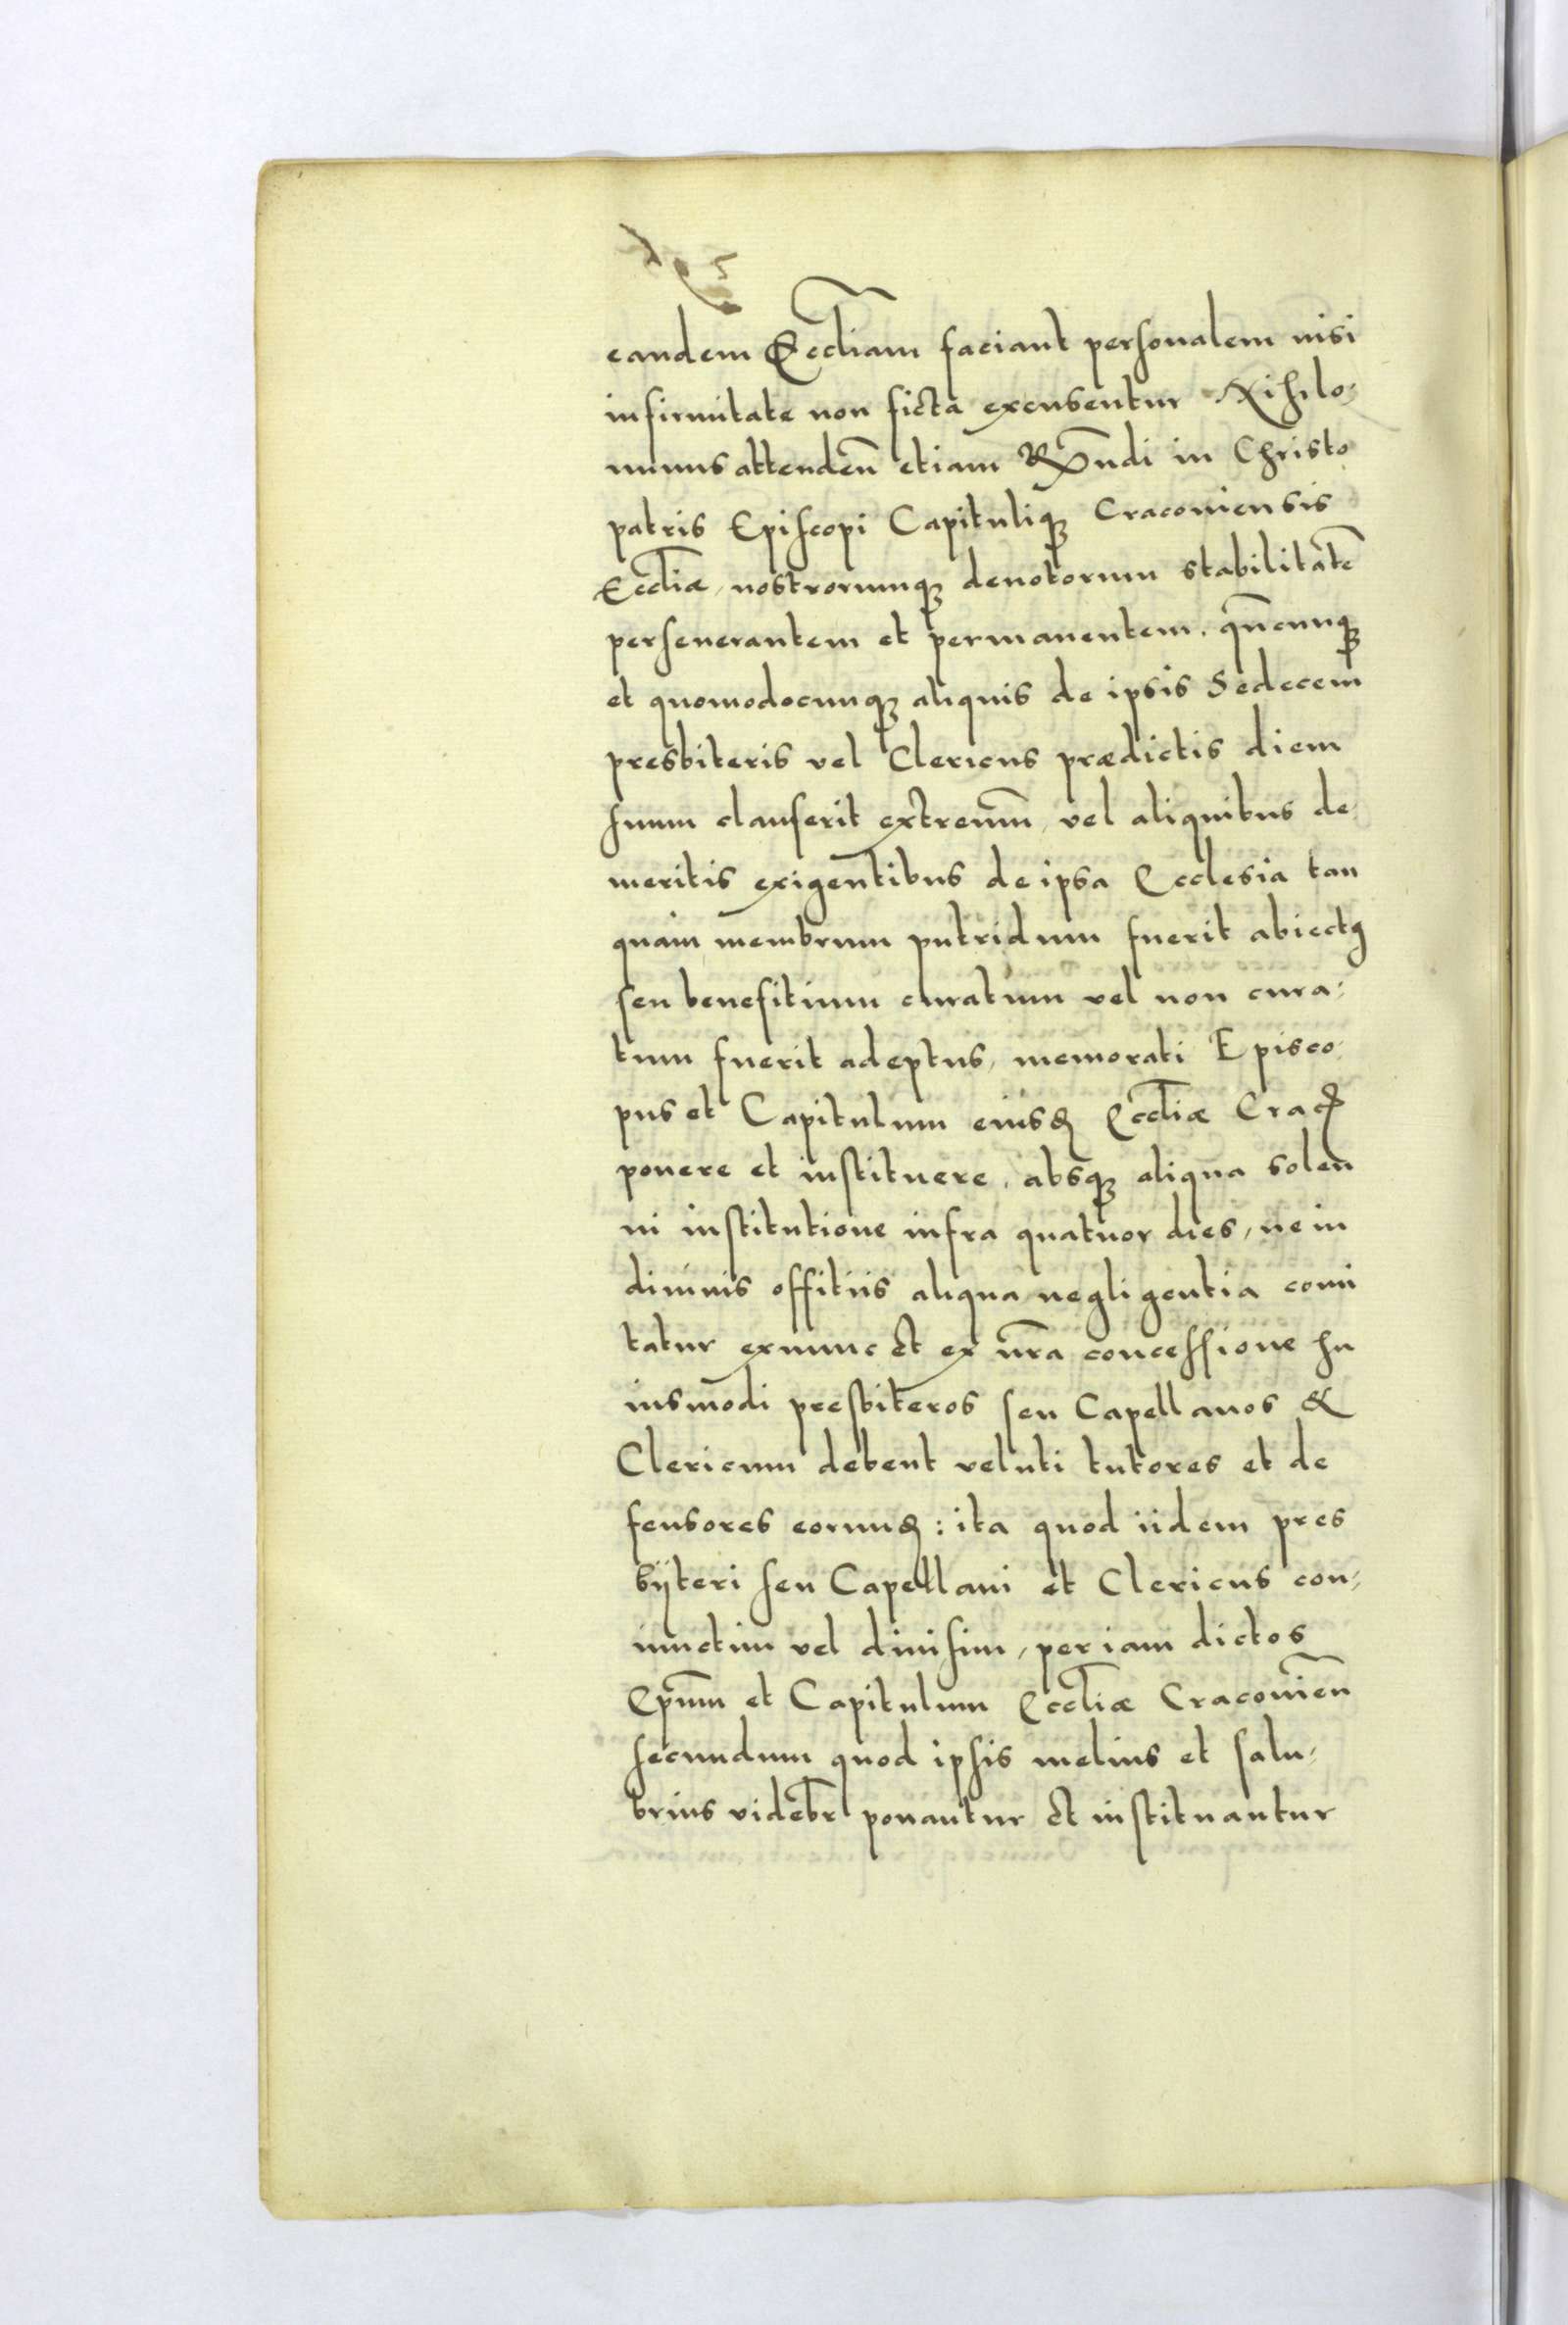 eandem Eccl̄iam faciant personalem nisi
infirmitate non ficta excusentur Nihilo-
minus attenden̄ etiam Rx̄ndi in Christo
patris Episcopi Capituliqꝫ Cracouiensis
Eccl̄iæ, nostrorumqꝫ deuotorum stabilitatē
perseuerantem et permanentem. qn̄cunqꝫ
et quomodocunqꝫ aliquis de ipsis Sedecem
presbiteris vel Clericus prædictis diem
suum clauserit extremū, vel aliquibus de
meritis exigentibus de ipsa Ecclesia tan
quam membrum putridum fuerit abiectꝰ
seu benefitium curatum vel non cura-
tum fuerit adeptus, memorati Episco
pus et Capitulum eiusđ Eccl̄iæ Crac̄
ponere et instituere, absqꝫ aliqua solen
ni institutione infra quatuor dies, ne in
diuinis offitiis aliqua negligentia comi
tatur exnunc et ex nr̄a concessione hu
iusmodi presbiteros seu Capellanos &
Clericum debent veluti tutores et de
fensores eorumđ: ita quod iidem pres
bÿteri seu Capellani et Clericus con-
iunctim vel diuisim, per iam dictos
Ep̄um et Capitulum Eccl̄iæ Cracouien̄
secundum quod ipsis melius et salu-
brius videbr̄ ponantur et instituantur